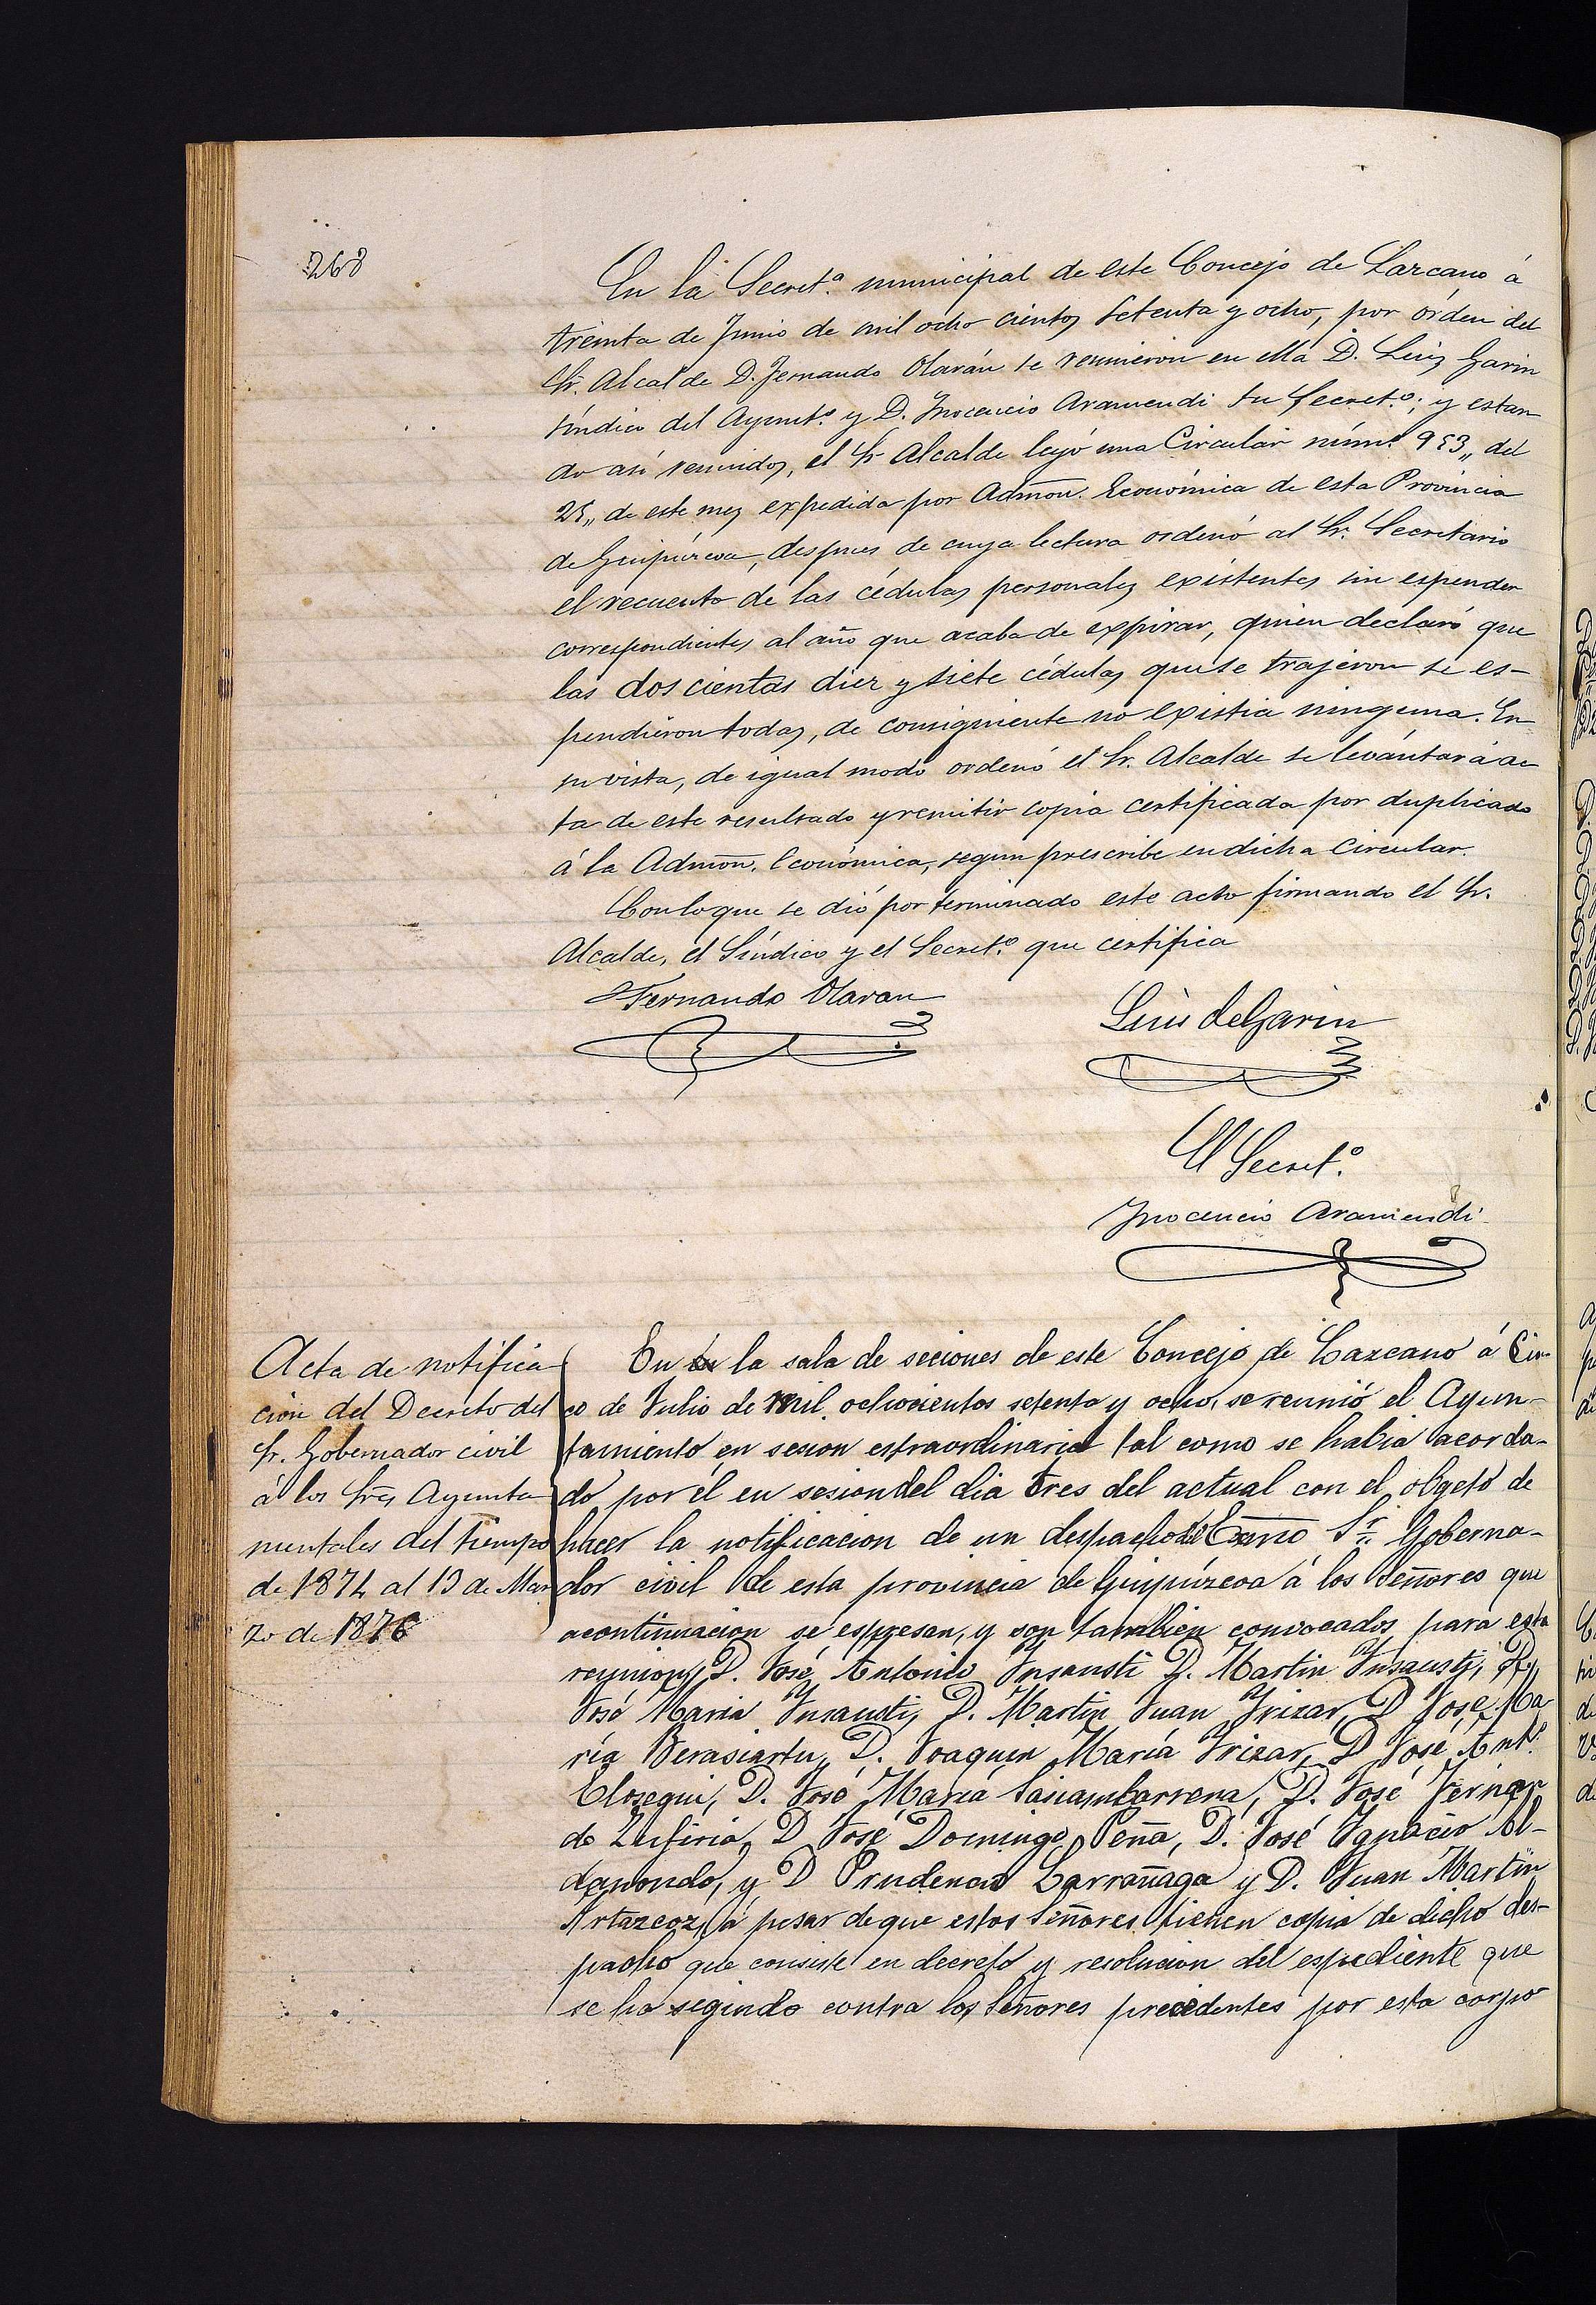 268
En la Secret.ª municipal de este Concejo de Lazcano á
treinta de Junio de mil ocho cientos setenta y ocho, por órden del
Sr. Alcalde D. Fernando Olarán se reunieron en ella D. Luis Garin
síndico del Ayunt.º y D. Inocencio Aramendi su Secret.º; y estan
do así reunidos, el Sr Alcalde leyó una Circular núm.º 953,, del
25,, de este mes expedida por Admon. Económica de esta Provincia
de Guipúzcoa, despues de cuya lectura ordenó al Sr. Secretario
el recuento de las cédulas personales existentes sin espender
correspondientes al año que acaba de expirar, quien declaró que
las dos cientas diez y siete cédulas que se trajeron se es-
pendieron todas, de consiguiente no existia ninguna. En
su vista, de igual modo ordenó el Sr. Alcalde se levantará ac
ta de este resultado y remitir copia certificada por duplicado
á la Admon. Económica, segun prescribe en dicha Circular.
Con lo que se dió por terminado este acto firmando el Sr.
Alcalde, el Síndico y el Secret.º que certifica
Fernando Olaran
Luis de Garin
El Secret.º
Inocencio Aramendi
Acta de notifica
cion del Decreto del
Sr. Gobernador civil
á los Sres Ayunta
mentales del tiempo
de 1874 al 13 de Mar
zo de 1876
En la sala de seciones de este Concejo de Lazcano á Cin-
co de Julio de mil ochocientos setenta y ocho, se reunió el Ayun-
tamiento en sesion estraordinaria tal como se habia acorda-
do por él en sesion del dia tres del actual con el obgeto de
hacer la notificacion de un despacho del Exmo Sr. Goberna-
dor civil de esta provincia de Guipúzcoa á los Señores que
acontinuacion se espresan, y son tambien convocados para esta
reunion, D. José Antonio Insausti D. Martin Insausti, D.
José Maria Insausti, D. Martin Juan Irizar, D José Ma
ría Berasiartu, D. Joaquin María Irizar, D José Ant.º
Elosegui, D. José María Lasciambarrena, D. José Fernan
do Zufiria, D José Domingo Peña, D. José Ignacio Al-
danondo, y D Prudencio Larrañaga y D. Juan Martin
Artazcoz, á pesar de que estos Señores tienen copia de dicho des-
pacho que consiste en decreto y resolucion del espediente que
se ha segindo contra los Señores precedentes por esta corpo